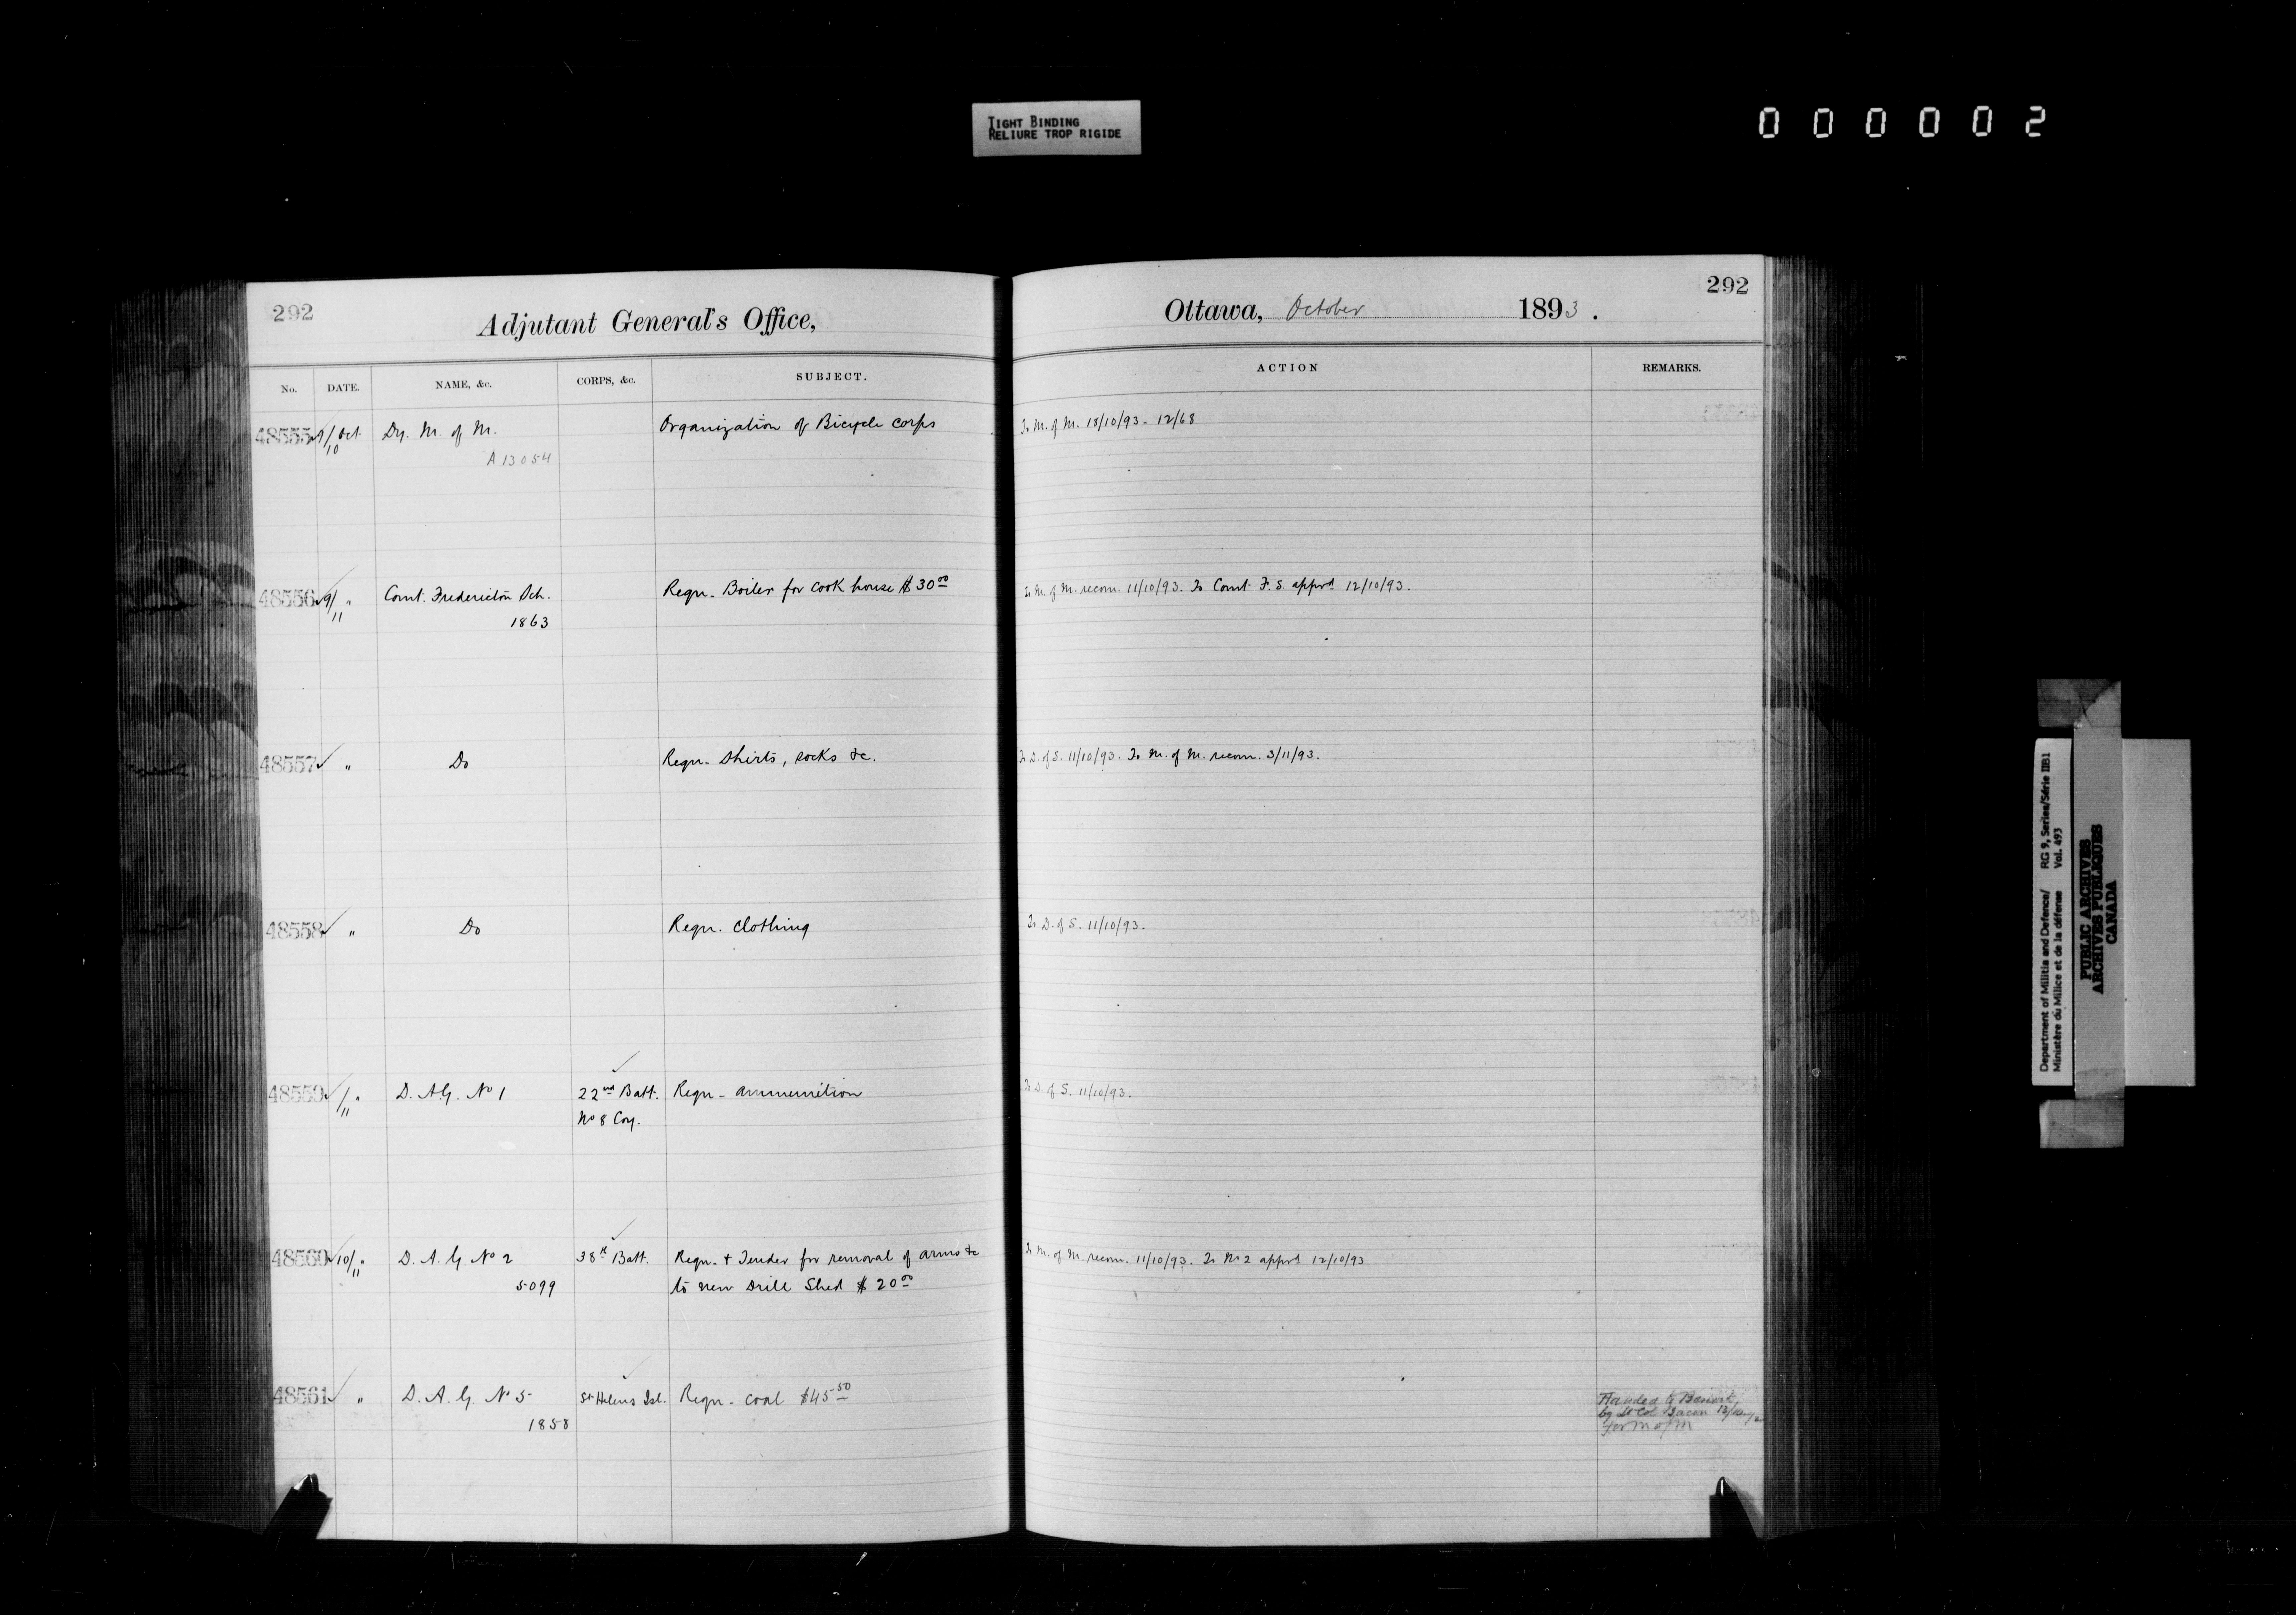 TIGHT BINDING
RELIURE TROP RIGIDE
000002
292
Adjutant General's Office,
No. DATE. NAME, &c. CORPS, &c. SUBJECT.
48555 9/10 Oct Dy. M. of M. Organization of Bicycle Corps
A 13054
48556 9/11 " Comt. Fredericton Sch. Reqn. Boiler for cook house $30 00
1863
48557 " Do Reqn. Shirts, socks &c.
48558 " Do Reqn. Clothing
48559 /11 " D. A. G. No 1 22nd Batt. Reqn. ammunition
No 8 Coy.
48560 10/11 " D. A. G. No 2 38th Batt. Reqn. + Tender for removal of arms &c
5099 to new Drill Shed $20 00
48561 " D. A. G. No 5 St Helens Isl. Reqn. coal $45 50
1858
292
Ottawa, October 1893.
ACTION REMARKS.
To M. of M. 18/10/93. 12/68
To M. of M. recom. 11/10/93. To Comt. F. S. apprd 12/10/93.
To D. of S. 11/10/93. To M. of M. recom. 3/11/93.
To D. of S. 11/10/93.
To D. of S. 11/10/93.
To M. of M. recom. 11/10/93. To No 2 apprd 12/10/93
Handed to Benoit
by Lt Col Bacon 13/
for M of M
Department of Militia and Defence/ RG 9, Series/Série IIB1
Ministère du Milice et de la défense Vol. 493
PUBLIC ARCHIVES
ARCHIVES PUBLIQUES
CANADA